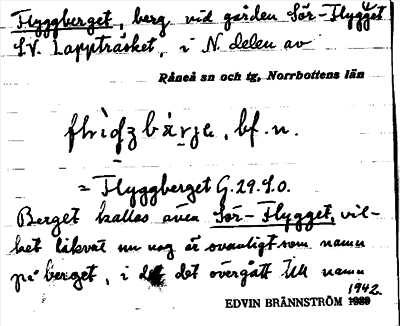 Flyggberget, berg vid gården Sör-Flygget
S.V. Lappträsket, i N. delen av
Råneå sn och tg, Norrbottens län
bf. n.
= Flyggberget G. 29. S.O.
Berget kallas även Sör-Flygget, vil-
ket likväl nu nog är ovanligt som namn
på berget, i det det övergått till namn
1942
EDVIN BRÄNNSTRÖM 1939